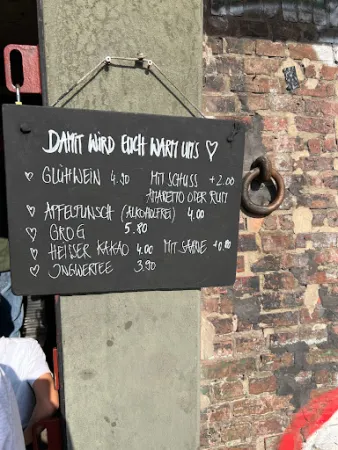 DAMIT WIRD EUCH WARM UMS ♡
♡ GLÜHWEIN 4.50 MIT SCHUSS +2.00
AMARETTO ODER RUM
♡ APFELPUNSCH (ALKOHOLFREI) 4.00
♡ GROG 5.80
♡ HEISSER KAKAO 4.00 MIT SAHNE
♡ INGWERTEE 3.90